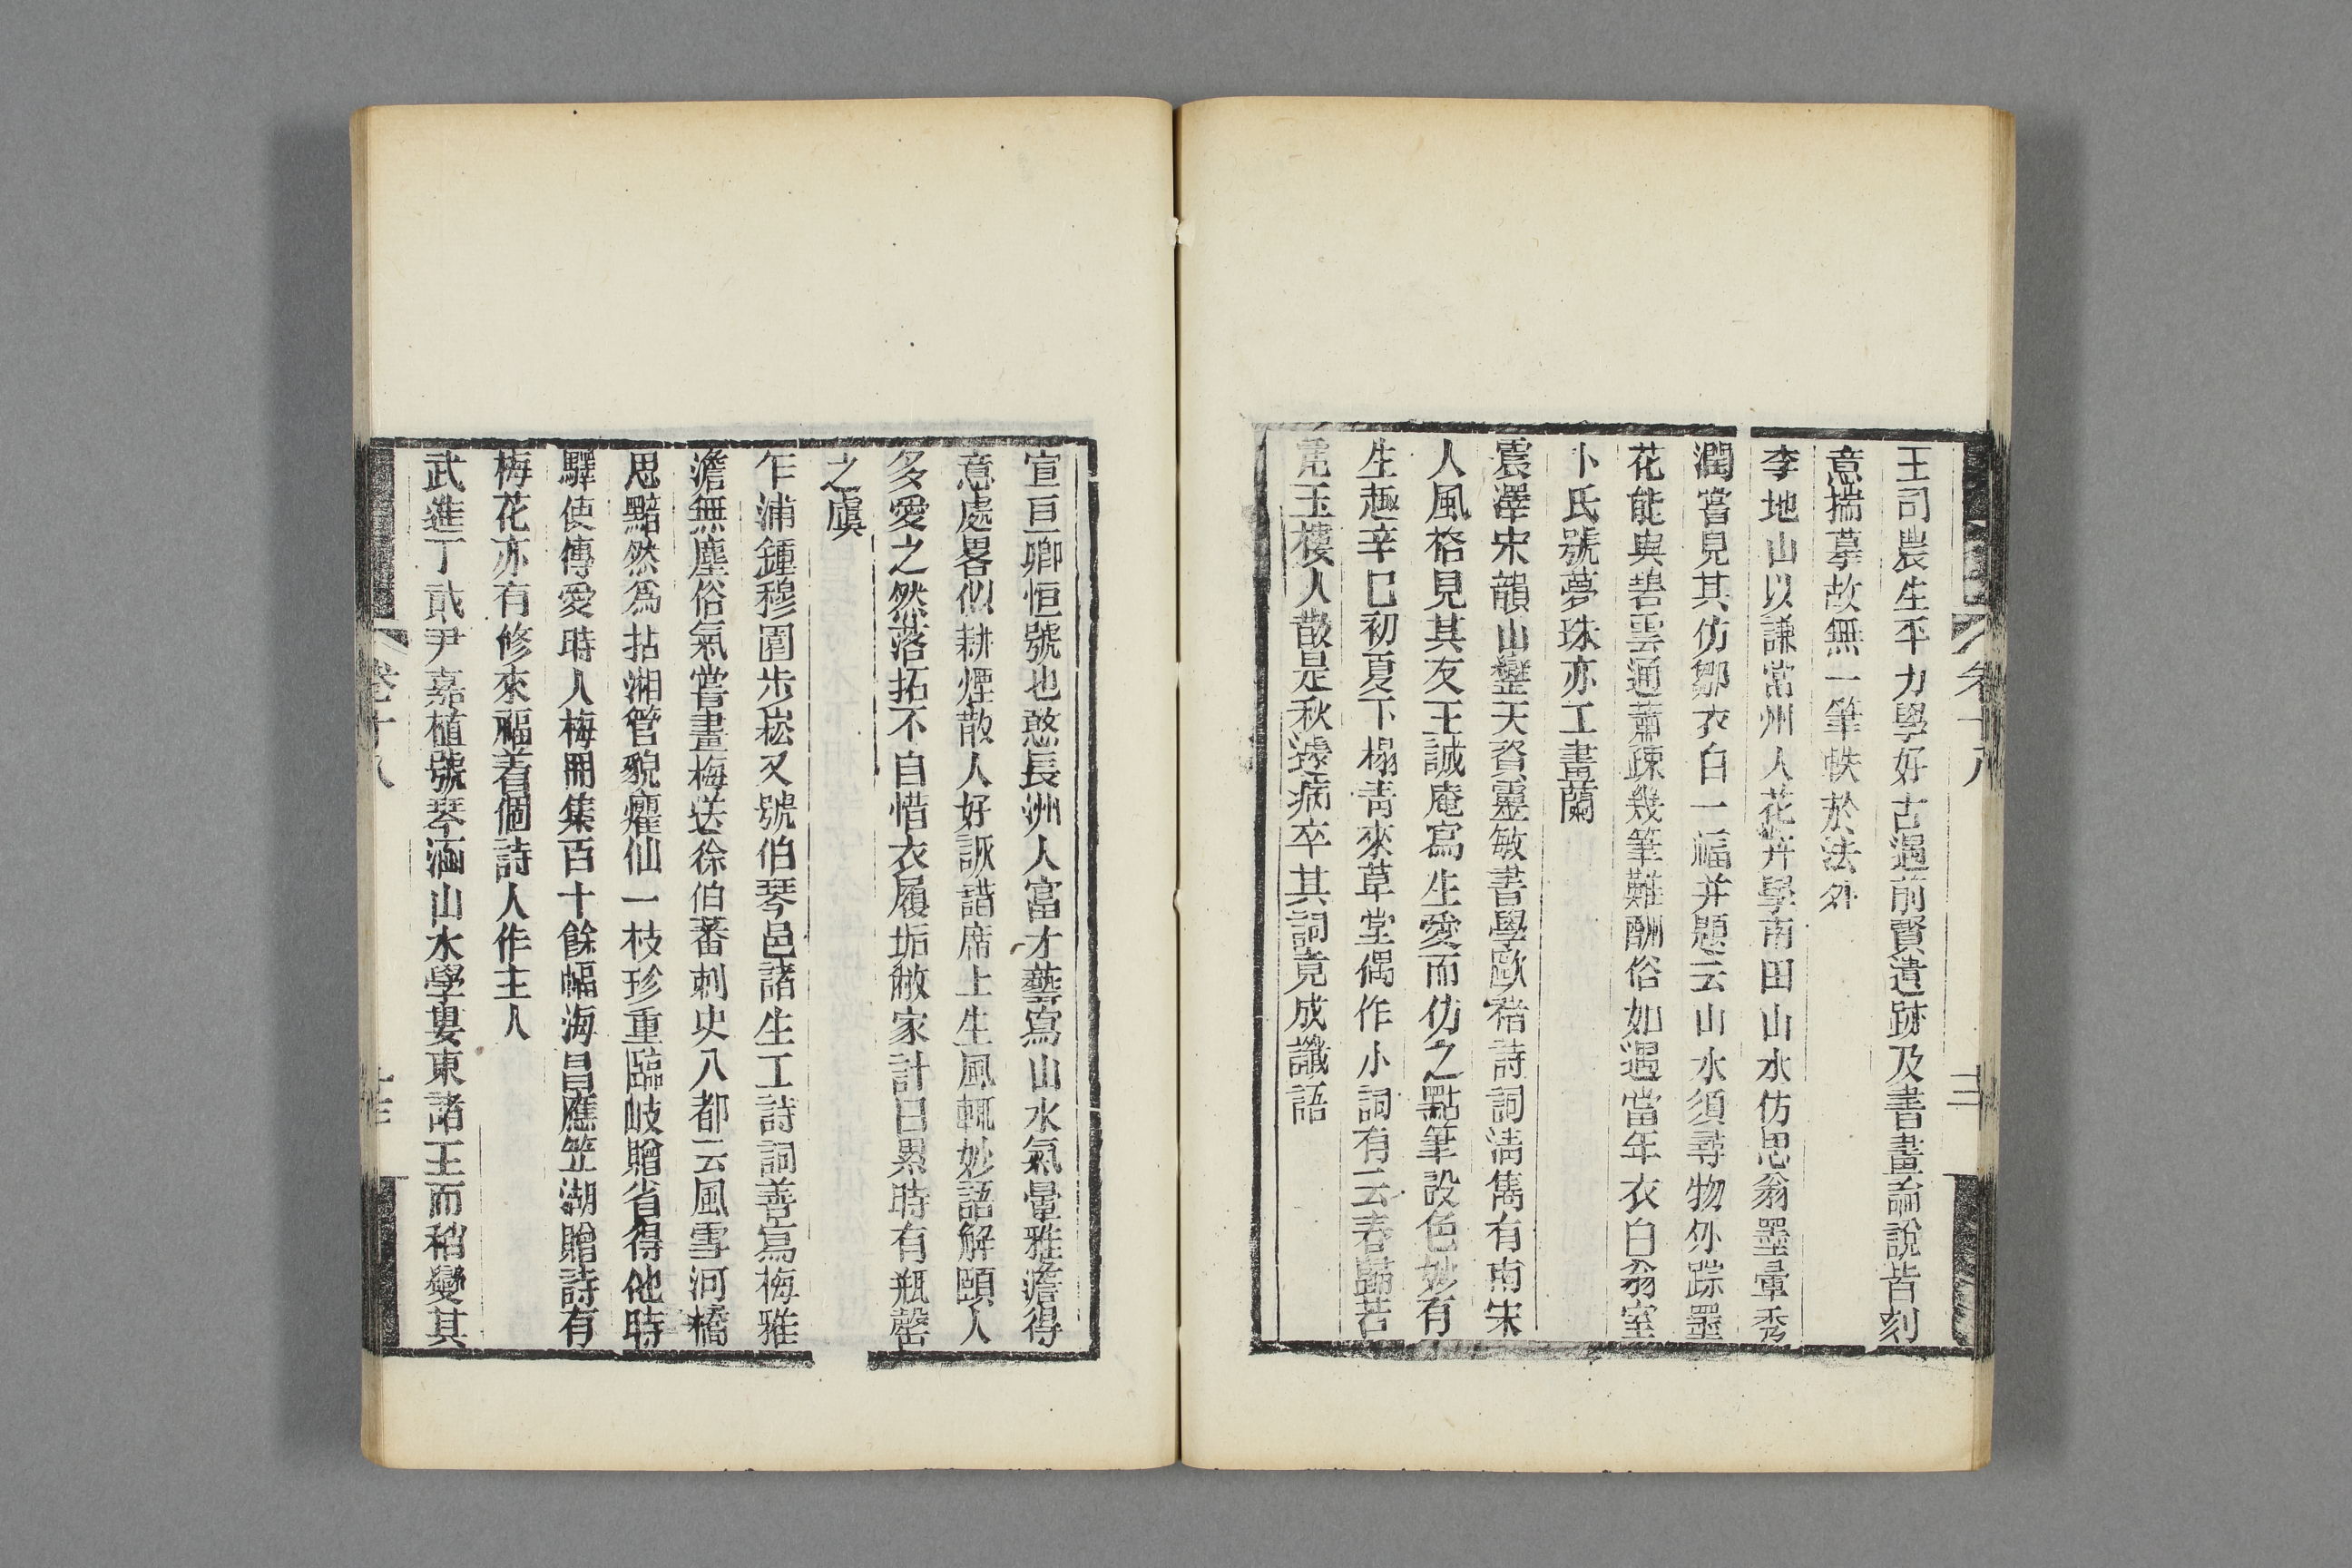 卷十八
三
王司農生平力學好古遇前賢遺跡及書畫論說皆刻
意揣摹故無一筆軼於法外
李地山以謙常州人花卉學南田山水仿思翁墨暈秀
潤嘗見其仿鄒衣白一福并題云山水須尋物外踪墨
花能與碧雲通蕭疎幾筆難酬俗如遇當年衣白翁室
卜氏號夢珠亦工畫蘭
震澤宋韻山鑾天資靈敏書學歐褚詩詞淸雋有南宋
人風格見其友王誠庵寫生愛而仿之點筆設色妙有
生趣辛巳初夏下榻靑來草堂偶作小詞有云春歸若
爲玉樓人散是秋遽病卒其詞竟成讖語
宣亘卿恒號也憨長洲人富才藝寫山水氣暈雅澹得
意處畧似耕煙散人好詼諧席上生風輒妙語解頤人
多愛之然落拓不自惜衣履垢敝家計日累時有瓶罄
之虞
乍浦鍾穆園步崧又號伯琴邑諸生工詩詞善寫梅雅
澹無塵俗氣嘗畫梅送徐伯蕃刺史入都云風雪河橋
思黯然爲拈湘管貌癯仙一枝珍重臨岐贈省得他時
驛使傳愛時人梅冊集百十餘幅海昌應笠湖贈詩有
梅花亦有修來福着個詩人作主人
武進丁貳尹嘉植號琴涵山水學婁東諸王而稍變其
卷十八